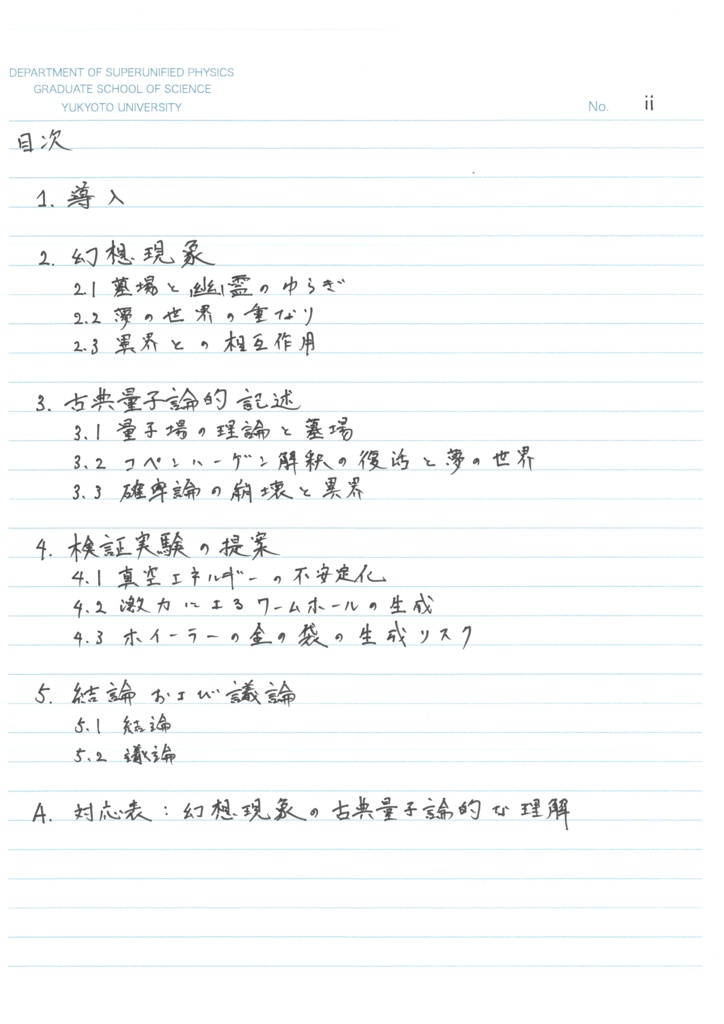 DEPARTMENT OF SUPERUNIFIED PHYSICS
GRADUATE SCHOOL OF SCIENCE
YUKYOTO UNIVERSITY
No. ii
目次
1. 導入
2. 幻想現象
2.1 墓場と幽霊のゆらぎ
2.2 夢の世界の重なり
2.3 異界との相互作用
3. 古典量子論的記述
3.1 量子場の理論と墓場
3.2 コペンハーゲン解釈の復活と夢の世界
3.3 確率論の崩壊と異界
4. 検証実験の提案
4.1 真空エネルギーの不安定化
4.2 激力によるワームホールの生成
4.3 ホイーラーの金の袋の生成リスク
5. 結論および議論
5.1 結論
5.2 議論
A. 対応表：幻想現象の古典量子論的な理解